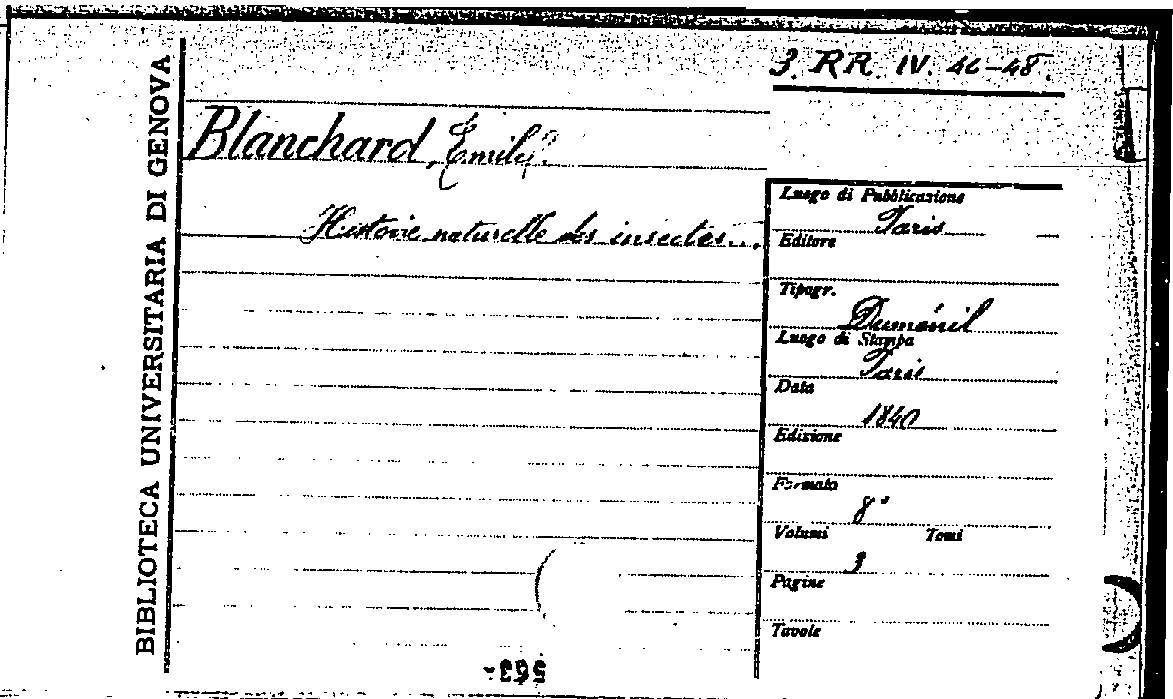 BIBLIOTECA UNIVERSITARIA DI GENOVA
3. RR. IV. 46-48.
Blanchard, Emile.
Histoire naturelle des insectes...
Luogo di Pubblicazione
Paris
Editore
Tipogr.
Duménil
Luogo di Stampa
Paris
Data
1840
Edizione
Formato
8°
Volumi Tomi
3
Pagine
Tavole